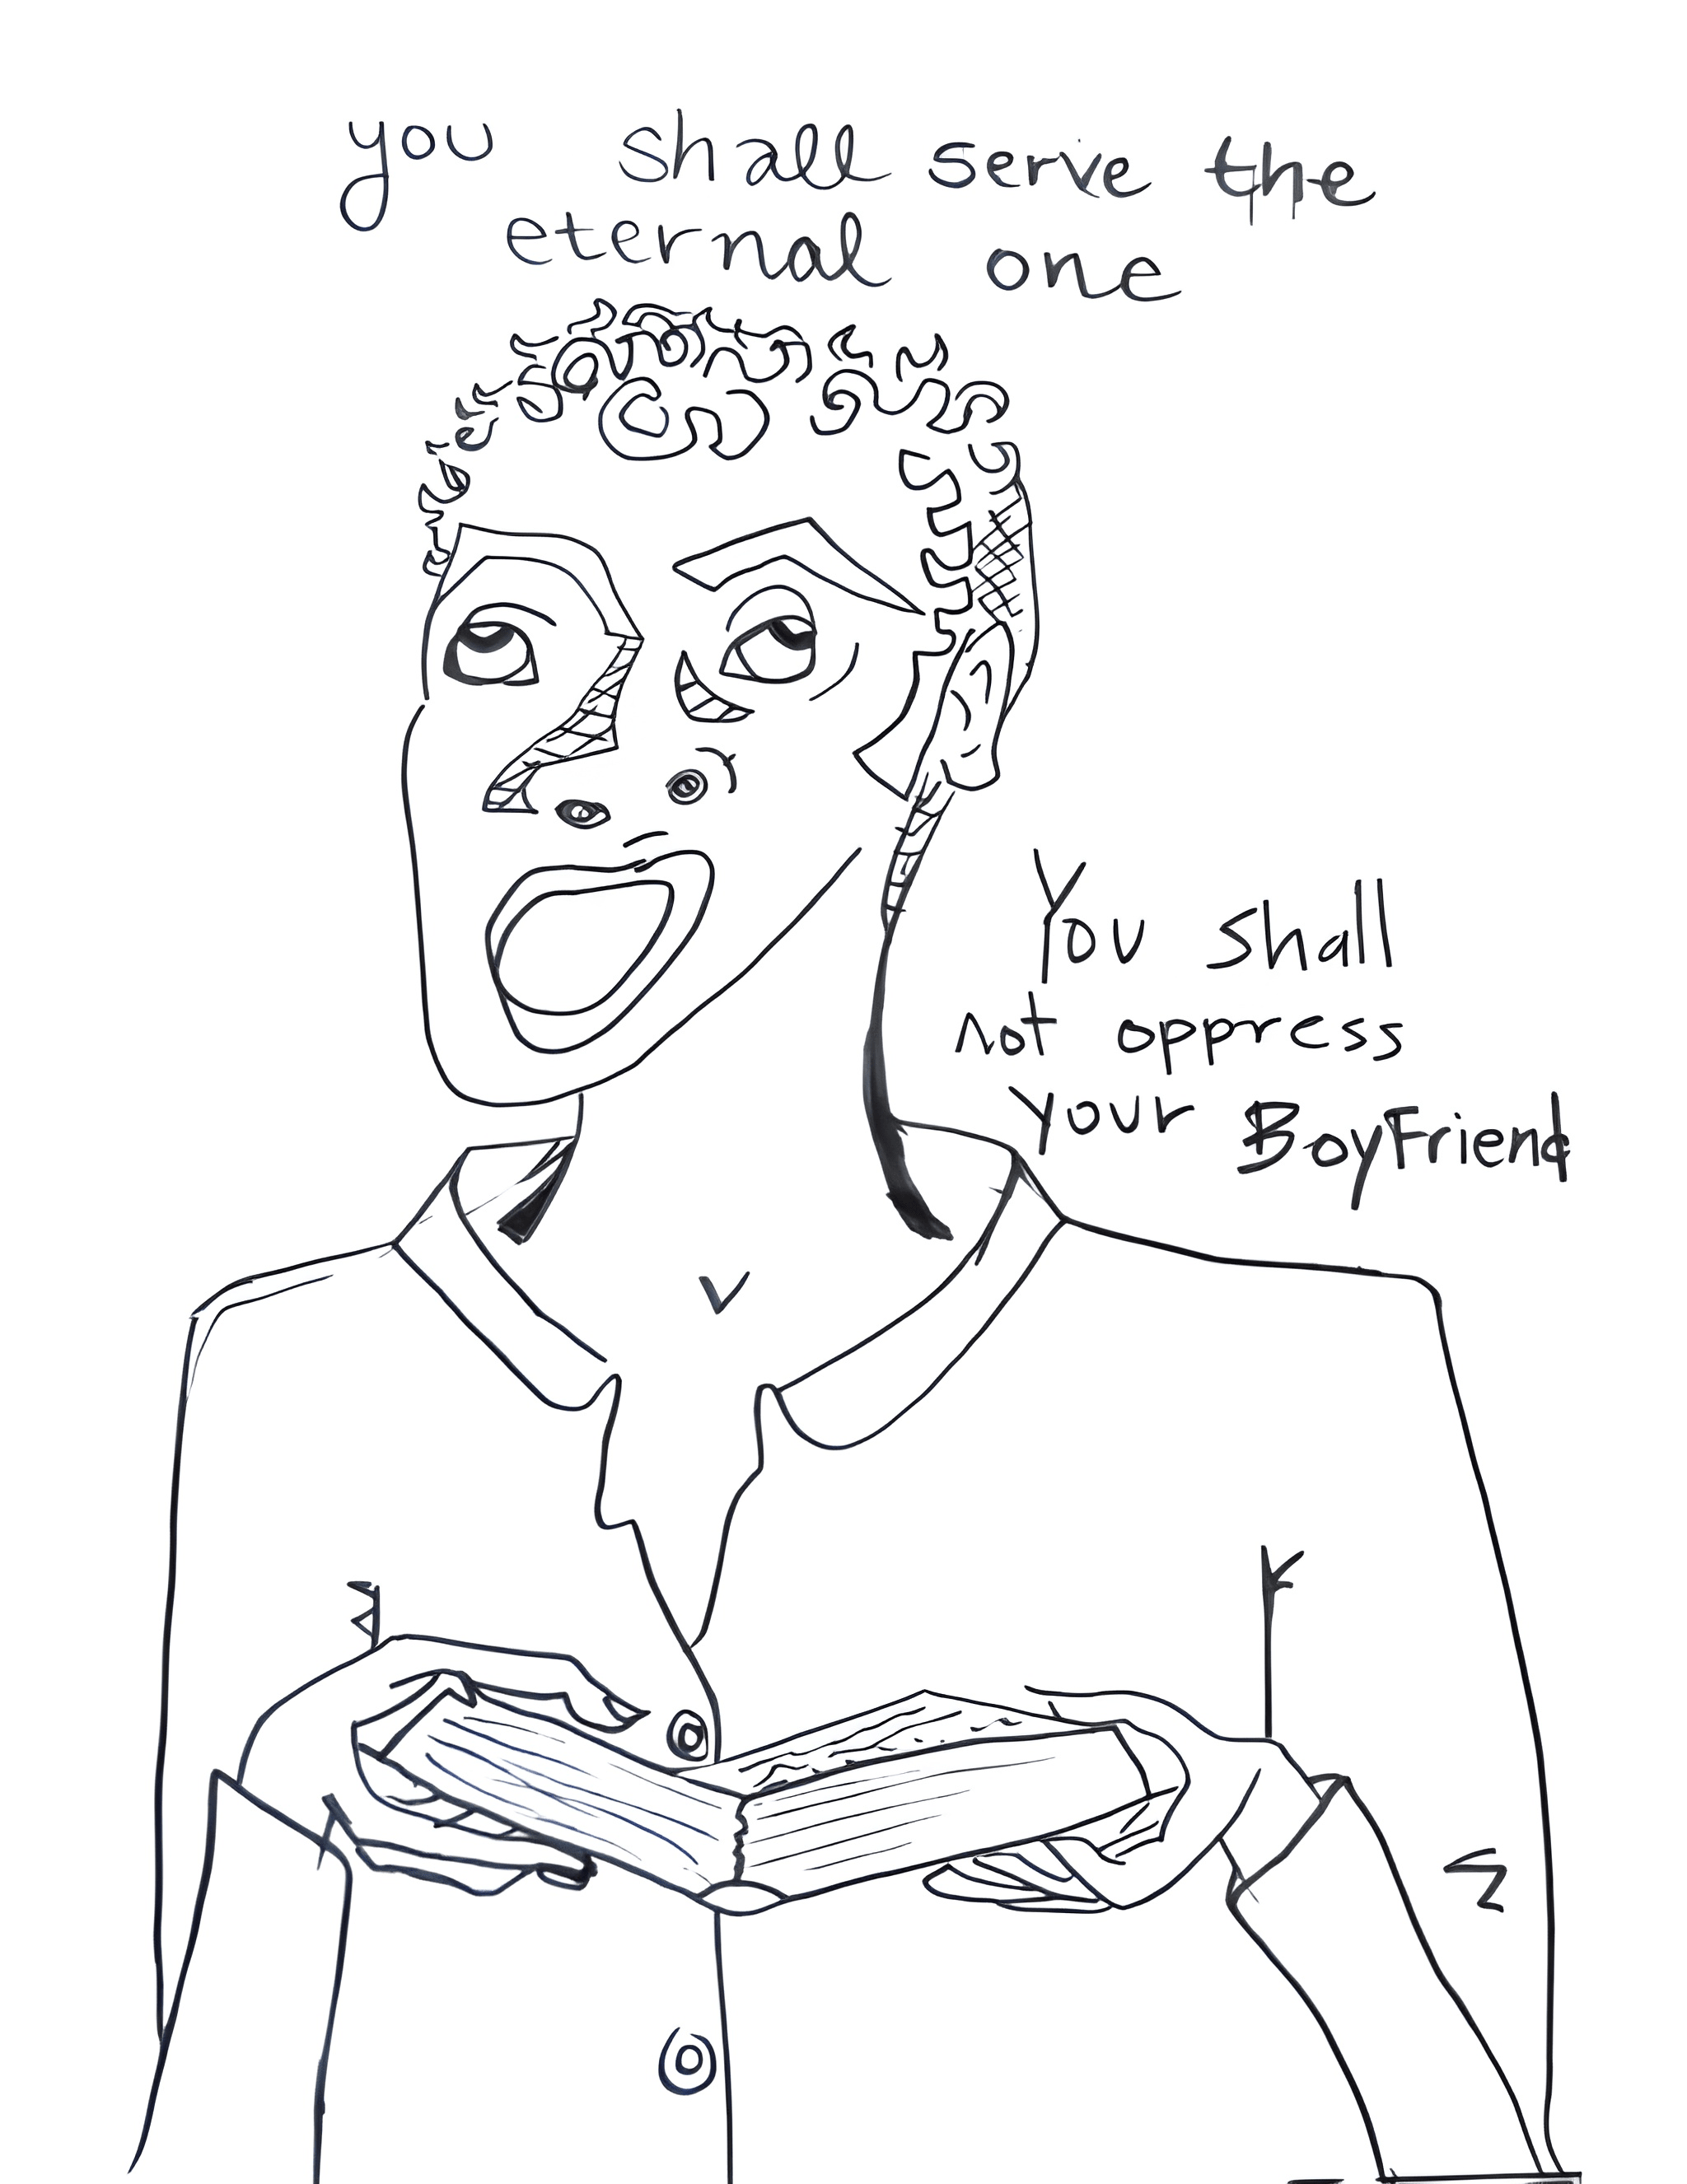 you shall serve the
eternal one
You shall
not oppress
your BoyFriend